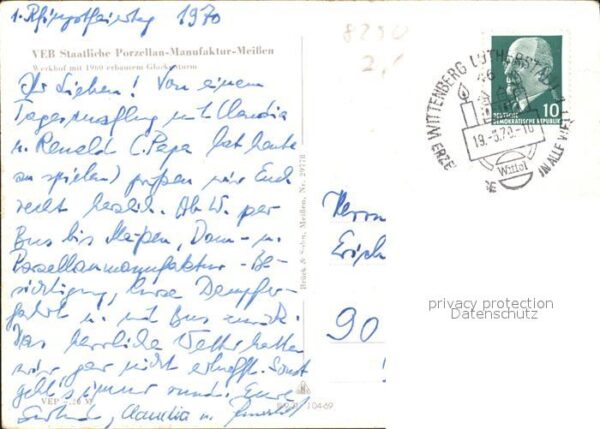 1. Pfingstfeiertag 1970
VEB Staatliche Porzellan-Manufaktur-Meißen
Werkhof mit 1960 erbautem Glockenturm
Ihr Lieben! Von einem
Tagesausflug mit Claudia
u. Renald (Papa hat heute
zu spielen) grüßen wir Euch
recht herzlich. Ab W. per
Bus bis Meißen, Dom- u.
Porzellanmanufaktur-Be-
sichtigung, kurze Dampfer-
fahrt u. mit Bus zurück.
Das herrliche Wetter hatten
wir gar nicht erhofft. Sonst
geht's immer rund. Eure
Claudia u.
VEP
1 04-69
Brück & Sohn, Meißen, Nr. 29778
8250
2,-
WITTENBERG LUTHERSTADT
46
19.-5.70.-10
Wittol
KERZEN
IN ALLE WELT
DEUTSCHE
DEMOKRATISCHE REPUBLIK
10
Herrn
Erich
90
privacy protection
Datenschutz